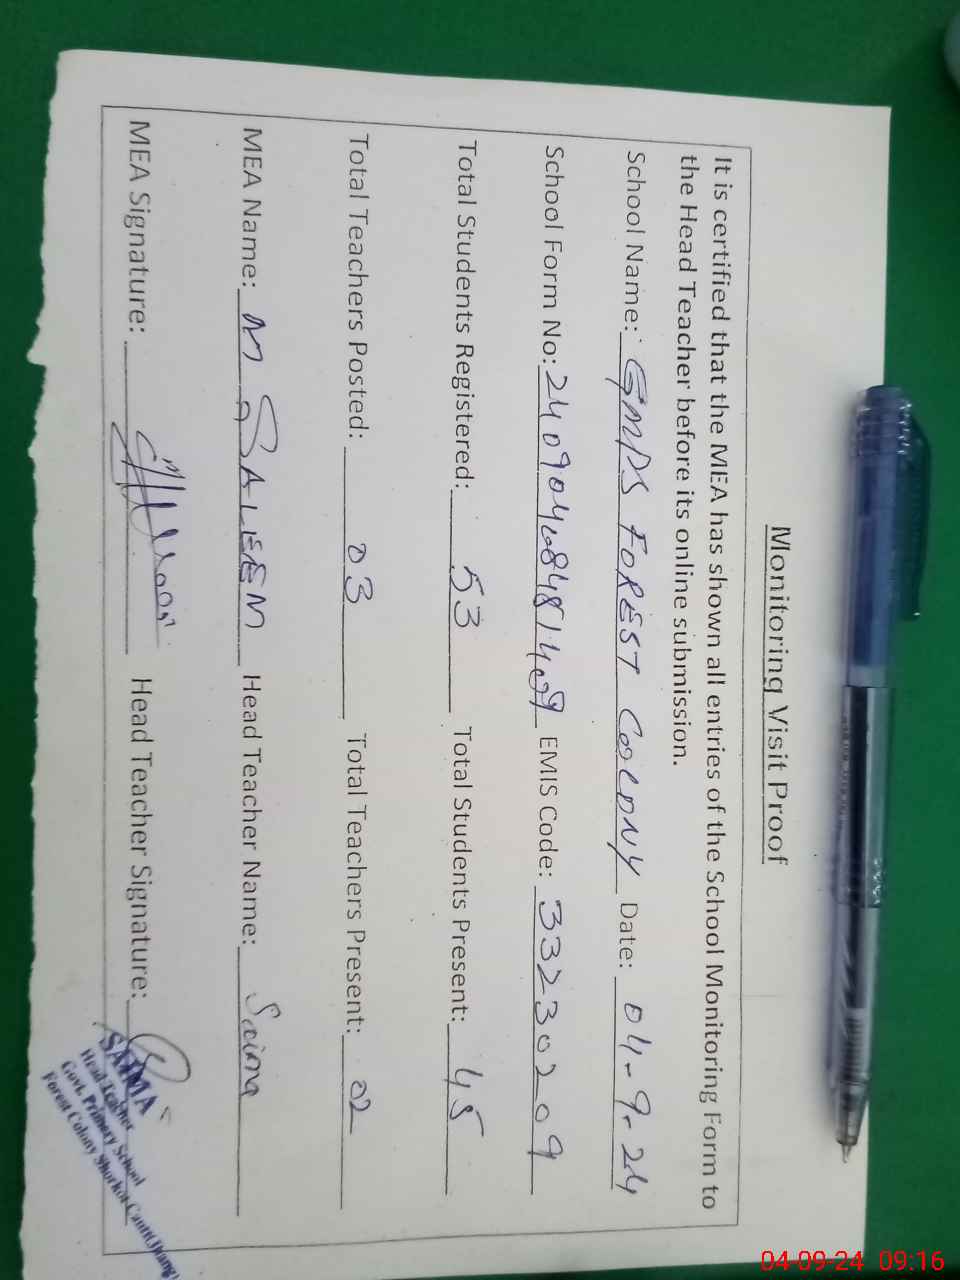 Monitoring Visit Proof
It is certified that the MEA has shown all entries of the School Monitoring Form to
the Head Teacher before its online submission.
School Name: GMPS FOREST COOLONY Date: 04-9-24
School Form No: EMIS Code: 33230209
Total Students Registered: 53 Total Students Present: 45
Total Teachers Posted: 03 Total Teachers Present: 02
MEA Name: M SALEEM Head Teacher Name: Saima
MEA Signature: Head Teacher Signature:
SAIMA
Head Teacher
Govt. Primary School
Forest Colony Shorkot Cantt(Jhang)
04-09-24 09:16